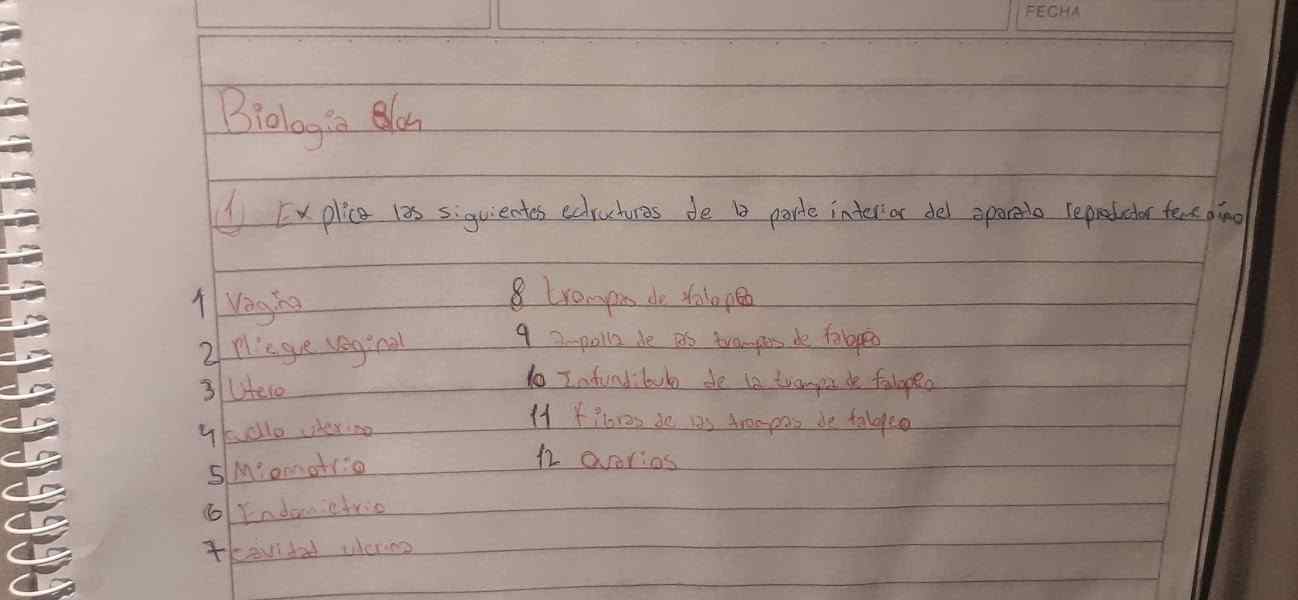 FECHA
Biologia
1 Explica las siguientes estructuras de la parte interior del aparato reproductor femenino
1 Vagina
2 Pliegue vaginal
3 Utero
4 cuello uterino
5 Miometrio
6 Endometrio
7 cavidad uterina
8 trompas de falopio
9 ampolla de las trompas de falopio
10 Infundibulo de la trompa de falopio
11 Fibras de las trompas de falopio
12 Ovarios